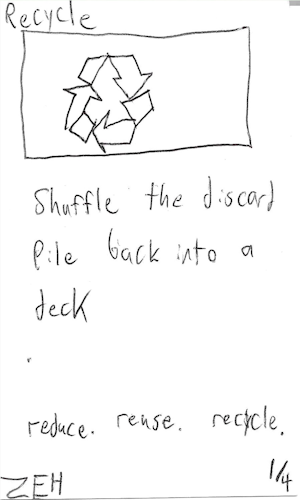 Recycle
Shuffle the discard
Pile back into a
deck
reduce. reuse. recycle.
ZEH
1/4